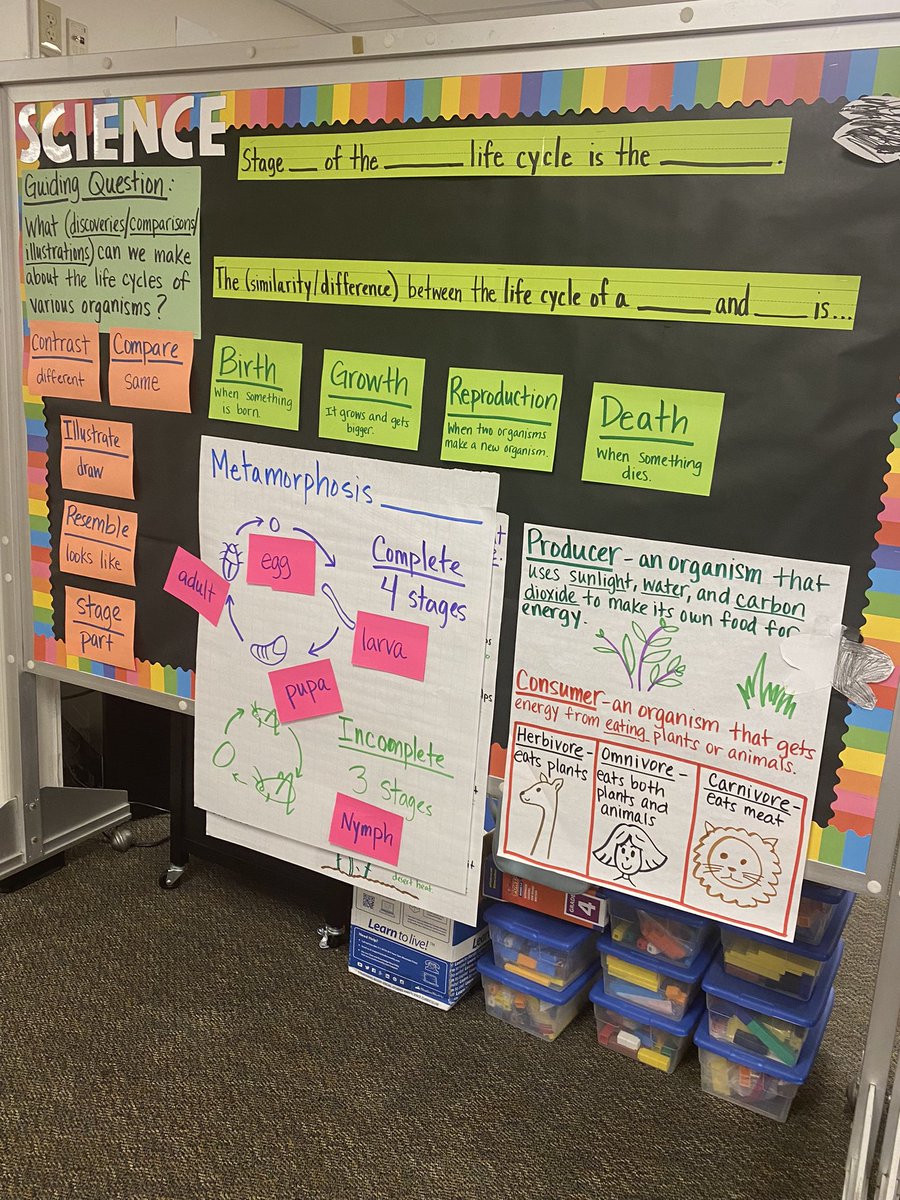 SCIENCE
Stage ___ of the ______ life cycle is the ________.
Guiding Question:
What (discoveries/comparisons/
illustrations) can we make
about the life cycles of
various organisms?
The (similarity/difference) between the life cycle of a ______ and ____ is...
Contrast
different
Compare
same
Birth
When something
is born.
Growth
It grows and gets
bigger.
Reproduction
When two organisms
make a new organism.
Death
When something
dies.
Illustrate
draw
Resemble
looks like
Stage
part
Metamorphosis ______
Complete
4 stages
egg
adult
larva
pupa
Incomplete
3 stages
Nymph
desert heat
Producer - an organism that
uses sunlight, water, and carbon
dioxide to make its own food for
energy.
Consumer - an organism that gets
energy from eating plants or animals.
Herbivore -
eats plants
Omnivore -
eats both
plants and
animals
Carnivore -
eats meat
Learn to live!
4